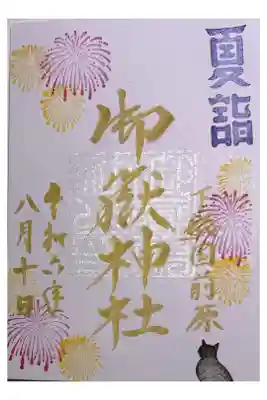 夏詣
下総国前原
御嶽神社
令和六年
八月十日